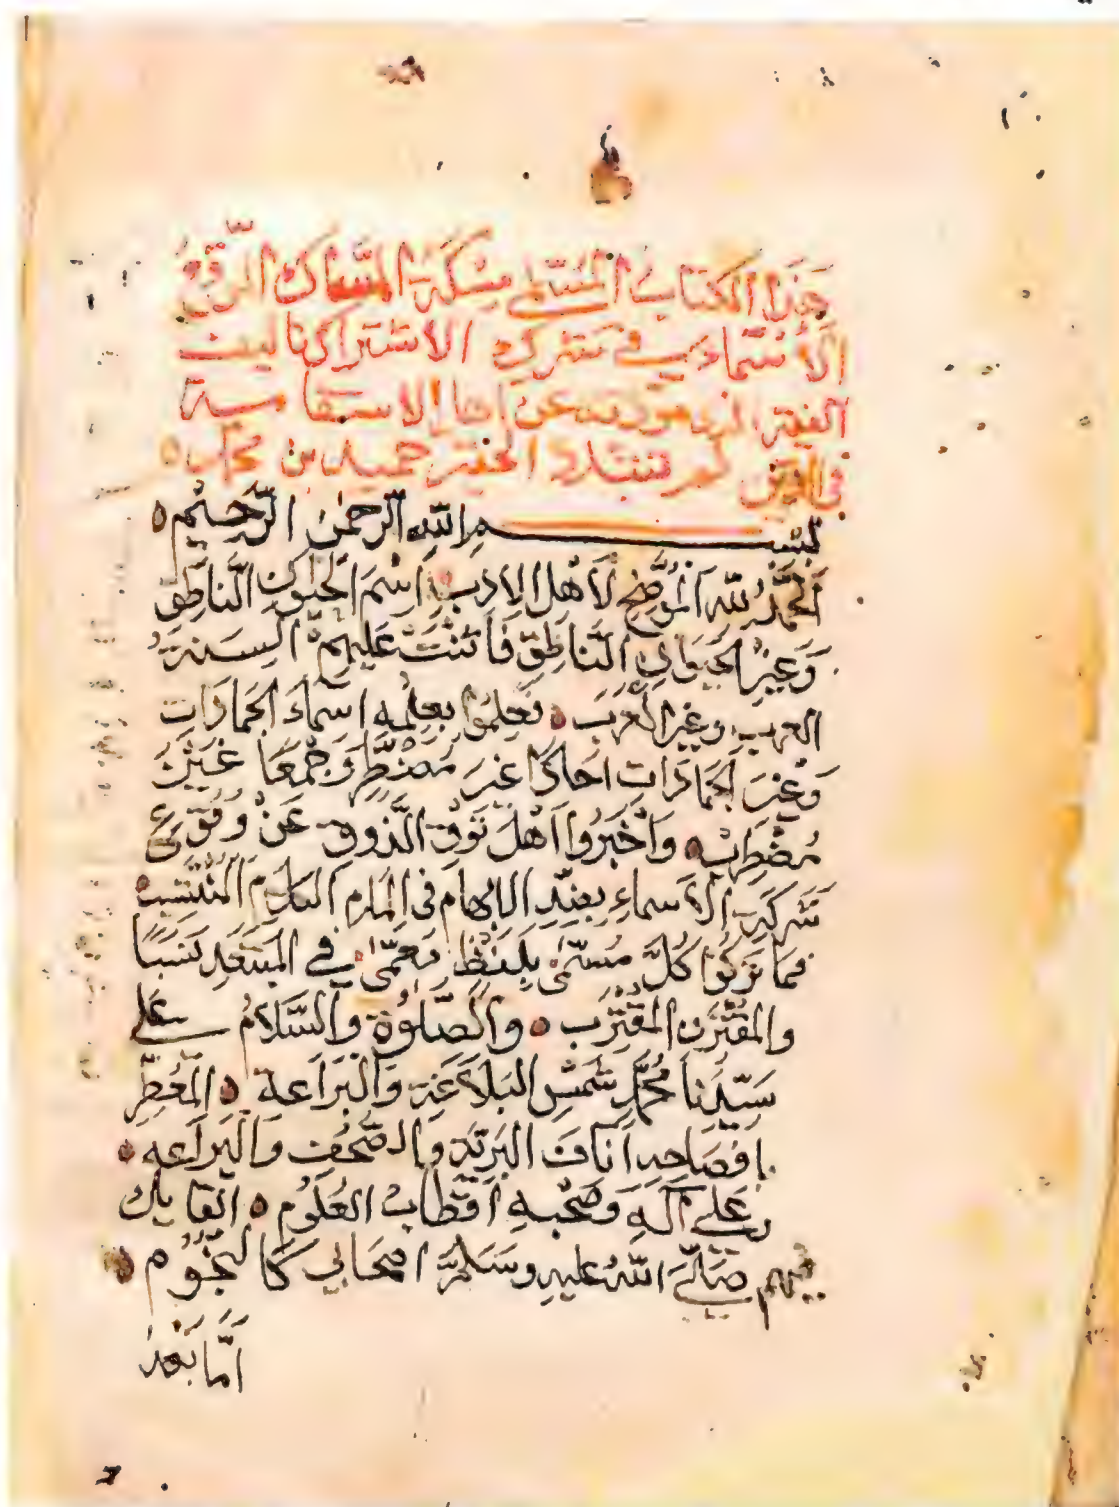 هذا الكتاب المسمى شركة المسماك
الأسماء في شرك الاشتراك تاليف
الفقير عن الاستقامة
الحقير حميد بن محمد
بسم الله الرحمن الرحيم
الحمد لله الموضح لأهل الادب اسم الحيوان الناطق
وغير الحيوان الناطق فأثنت عليهم السنة
العرب وغير العرب فعلموا بعلمه اسماء الجمادات
وغير الجمادات احادا غير مضطر وجمعا غير
مضطرب وأخبروا اهل توق الذوق عن وقوع
شركة الأسماء في
فما تركوا كل مسمى بلفظ معمى في المبتعد نسبا
والمقترن المقترب والصلوة والسلام على
سيدنا محمد شمس البلاغة والبراعة المعطر
بافصاحه اناف البرية والصحف واليراعه
وعلى آله وصحبه اقطاب العلوم القايل
فيهم صلى الله عليه وسلم اصحابي كالنجوم
أما بعد